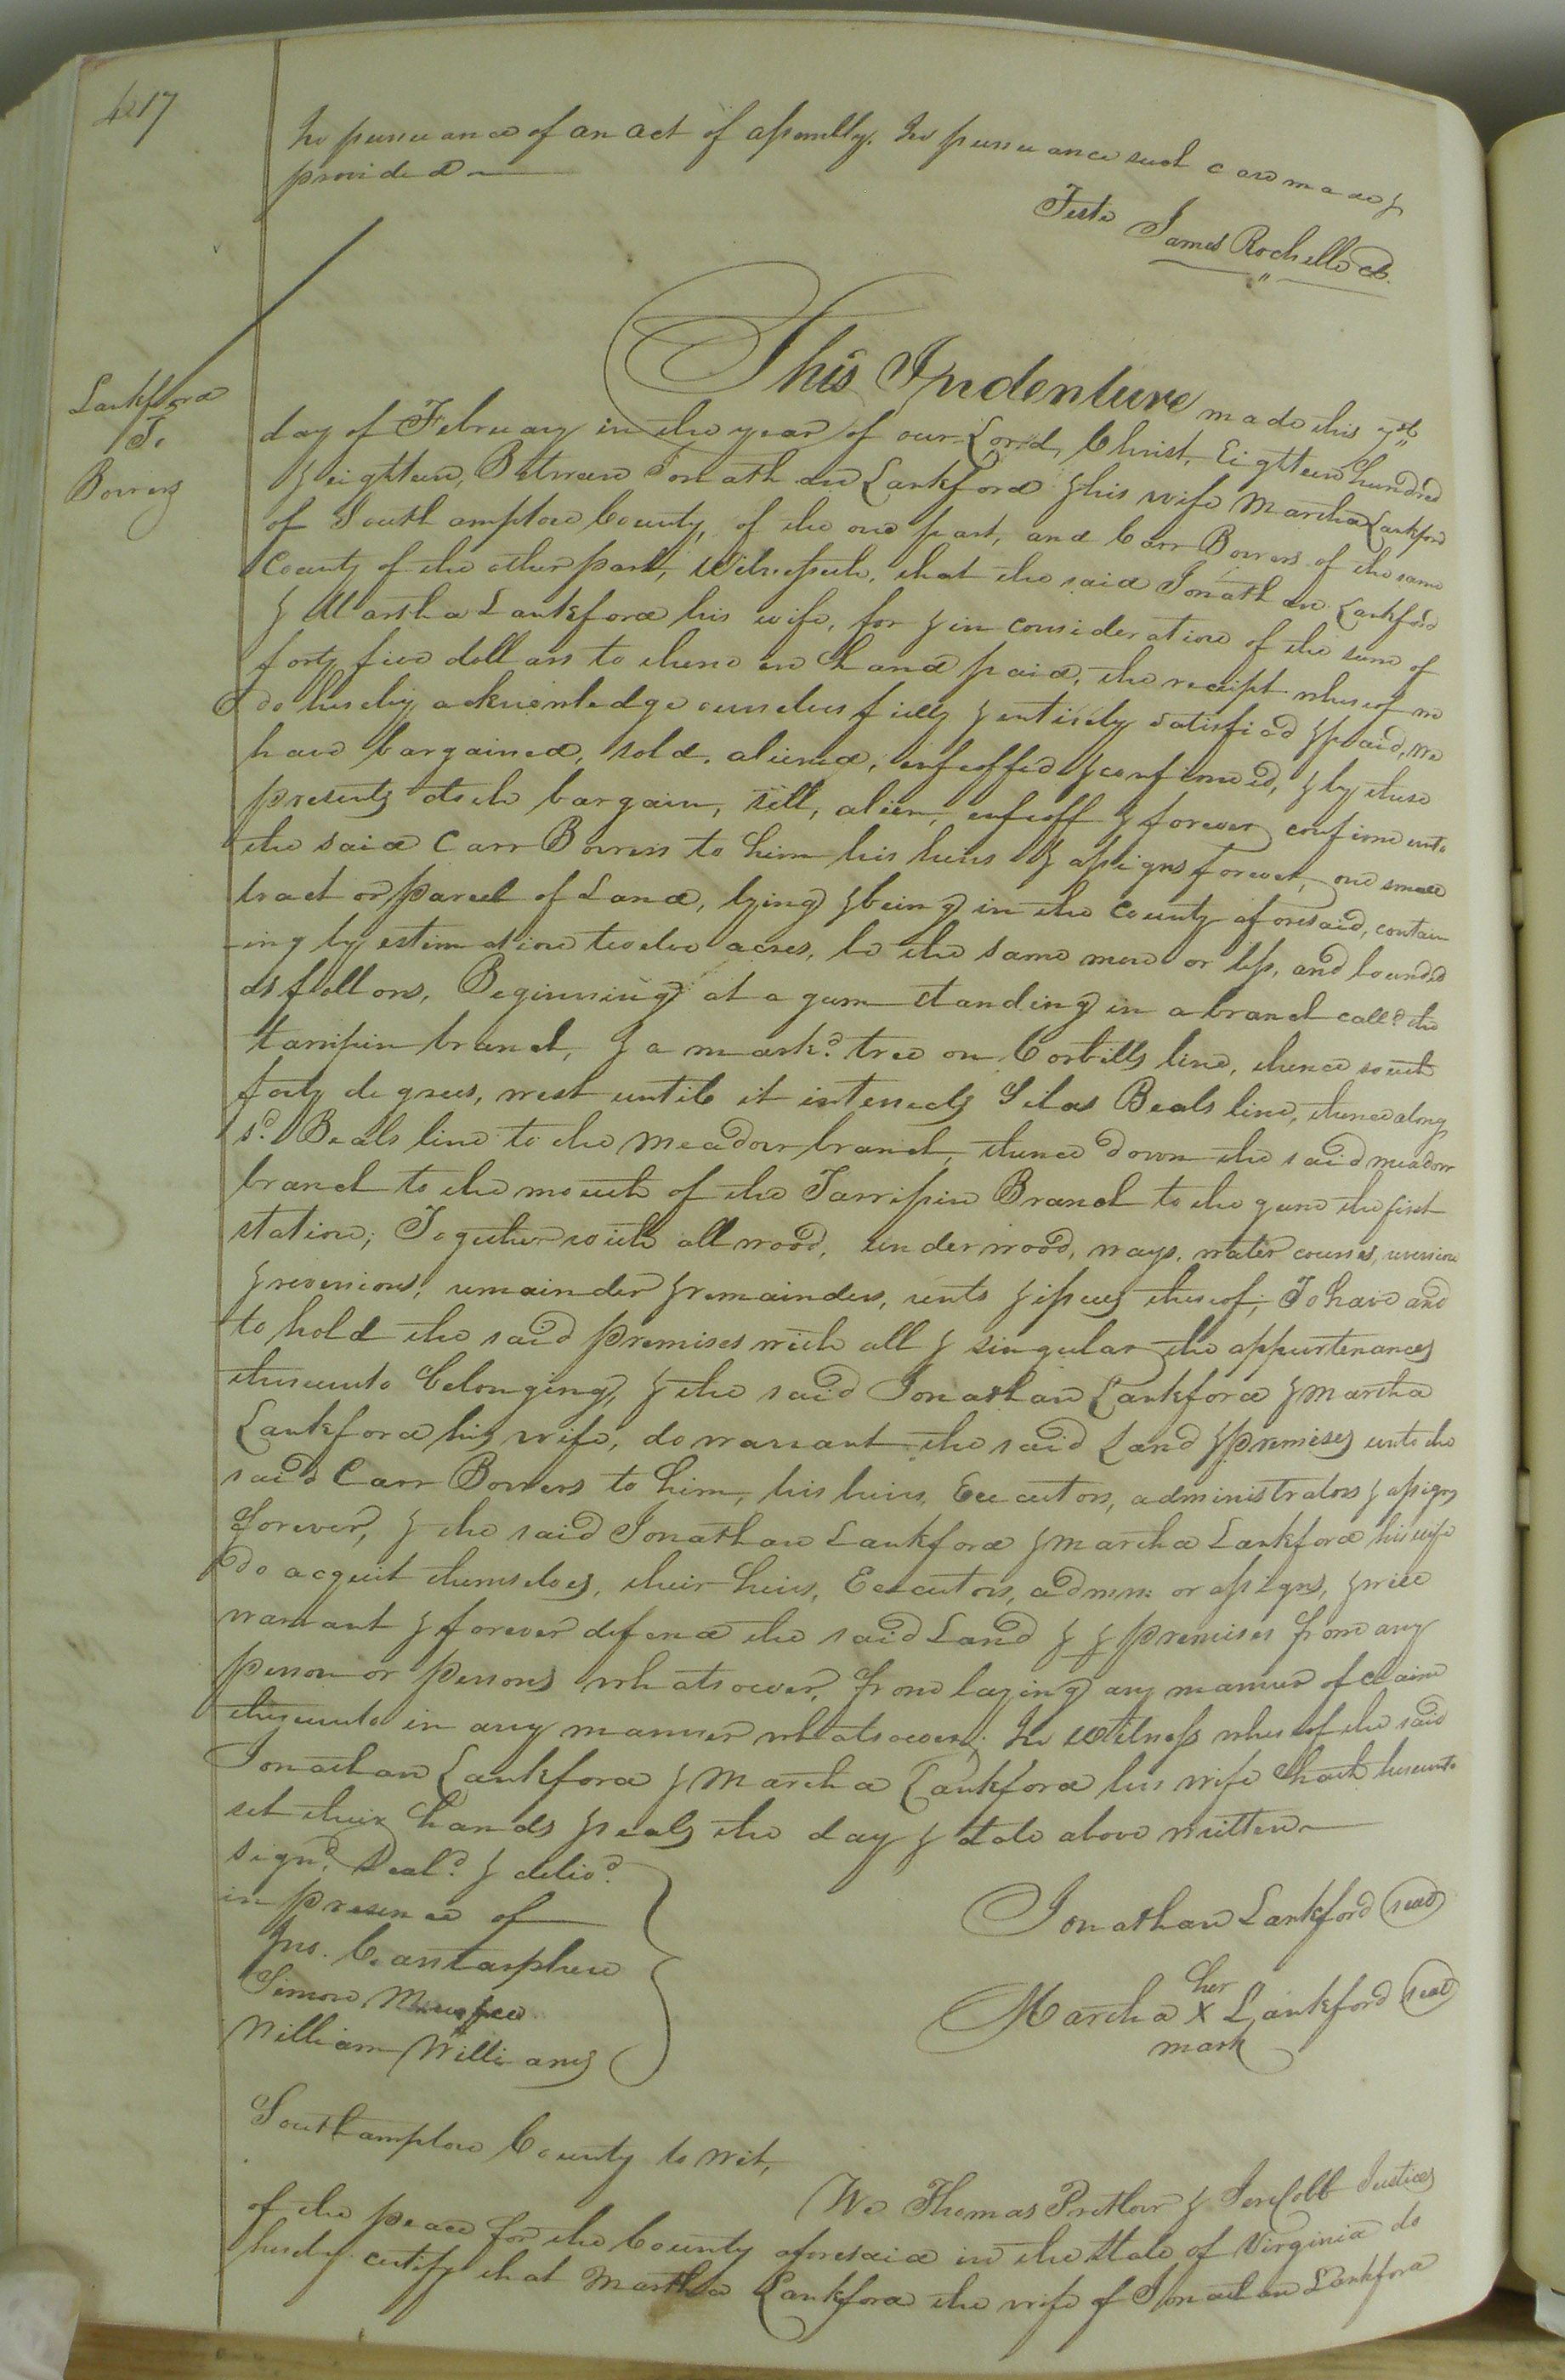 417
In pursuance of an act of assembly. In pursuance such case made &
provided —
Teste James Rochelle Cl.
Lankford
To
Bowers
This Indenture made this
day of February in the year of our Lord, Christ, Eighteen hundred
& eighteen, Between Jonathan Lankford & his wife Martha Lankford
of Southampton County, of the one part, and Carr Bowers of the same
County of the other part, Witnesseth, that the said Jonathan Lankford
& Martha Lankford his wife, for & in consideration of the sum of
forty five dollars to them in hand paid, the receipt whereof we
do hereby acknowledge ourselves fully & entirely satisfied & paid, we
have bargained, sold, aliened, enfeoffed & confirmed, & by these
presents doth bargain, sell, alien, enfeoff & forever confirm unto
the said Carr Bowers to him his heirs & assigns forever, one small
tract or parcel of Land, lying & being in the County aforesaid, contain
-ing by estimation twelve acres, be the same more or less, and bounded
as follows, Beginning at a gum standing in a branch call.d the
tarripin branch, & a mark.d tree on Corbills line, thence south
forty degrees, west until it intersects Silas Beals line, thence along
s.d Beals line to the Meadow branch, thence down the said meadow
branch to the mouth of the Tarripin Branch to the gum the first
station; Together with all wood, underwood, ways, water courses, reversion
& reversions, remainder & remainders, rents & issues thereof; To have and
to hold the said premises with all & singular the appurtenances
thereunto belonging, & the said Jonathan Lankford & Martha
Lankford his wife, do warrant the said Land & premises unto the
said Carr Bowers to him, his heirs, Executors, administrators & assigns
forever, & the said Jonathan Lankford & Martha Lankford his wife
do acquit themselves, their heirs, Executors, admrs or assigns, & will
warrant & forever defend the said Land & & premises from any
person or persons whatsoever, from laying any manner of claim
thereunto in any manner whatsoever; In Witness whereof the said
Jonathan Lankford & Martha Lankford his wife hath hereunto
set their hands & seals the day & date above written —
sign.d, Seal.d & deliv.d
in presence of
Jno. C.
Simon
William Williams
Jonathan Lankford seal
her
Martha X Lankford seal
mark
Southampton County to wit,
We Thomas Pretlow & Jere Cobb Justices
of the peace for the County aforesaid in the State of Virginia do
hereby certify that Martha Lankford the wife of Jonathan Lankford